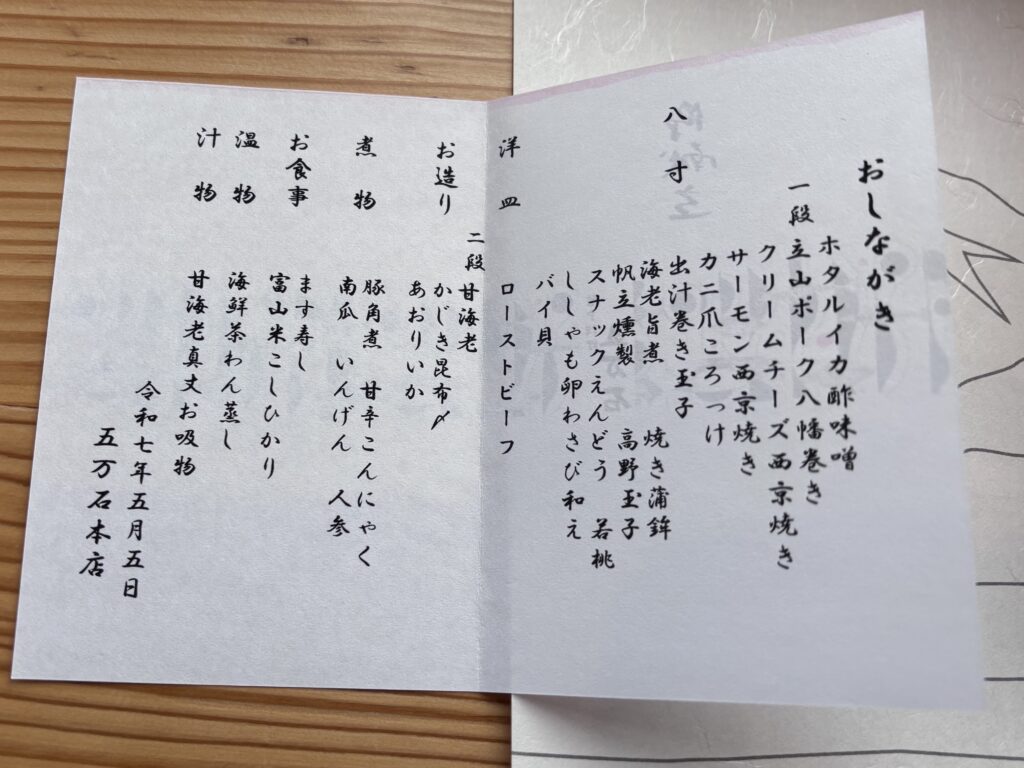 おしながき
一段
ホタルイカ酢味噌
立山ポーク八幡巻き
クリームチーズ西京焼き
サーモン西京焼き
カニ爪ころっけ
八寸
出汁巻き玉子
海老旨煮 焼き蒲鉾
帆立燻製 高野玉子
スナックえんどう 若桃
ししゃも卵わさび和え
バイ貝
洋皿 ローストビーフ
二段
お造り 甘海老
かじき昆布〆
あおりいか
煮物 豚角煮 甘辛こんにゃく
南瓜 いんげん 人参
お食事 ます寿し
富山米こしひかり
温物 海鮮茶わん蒸し
汁物 甘海老真丈お吸物
令和七年五月五日
五万石本店